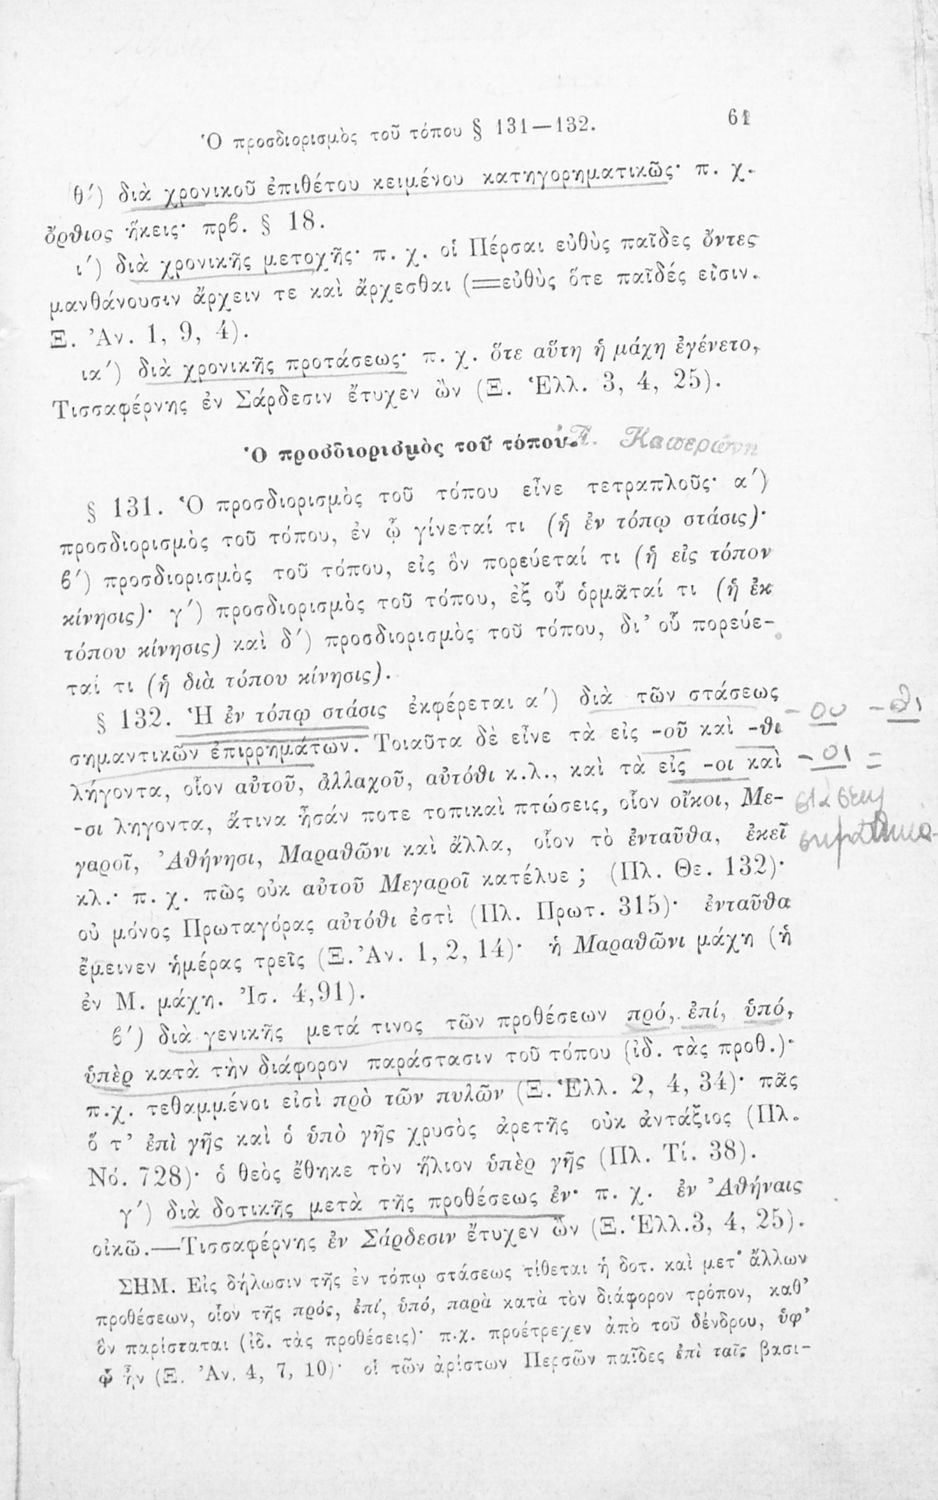 Ὁ προσδιορισμὸς τοῦ τόπου § 131—132. 61
θ΄) διὰ χρονικοῦ ἐπιθέτου κειμένου κατηγορηματικῶς· π. χ.
ὄρθιος ἥκεις· πρβ. § 18.
ι΄) διὰ χρονικῆς μετοχῆς· π. χ. οἱ Πέρσαι εὐθὺς παῖδες ὄντες
μανθάνουσιν ἄρχειν τε καὶ ἄρχεσθαι (=εὐθὺς ὅτε παῖδές εἰσιν.
Ξ. Ἀν. 1, 9, 4).
ια΄) διὰ χρονικῆς προτάσεως· π. χ. ὅτε αὕτη ἡ μάχη ἐγένετο,
Τισσαφέρνης ἐν Σάρδεσιν ἔτυχεν ὢν (Ξ. Ἑλλ. 3, 4, 25).
Ὁ προσδιορισμὸς τοῦ τόπου.
§ 131. Ὁ προσδιορισμὸς τοῦ τόπου εἶνε τετραπλοῦς· α΄)
προσδιορισμὸς τοῦ τόπου, ἐν ᾧ γίνεταί τι (ἡ ἐν τόπῳ στάσις)·
β΄) προσδιορισμὸς τοῦ τόπου, εἰς ὃν πορεύεταί τι (ἡ εἰς τόπον
κίνησις)· γ΄) προσδιορισμὸς τοῦ τόπου, ἐξ οὗ ὁρμᾶταί τι (ἡ ἐκ
τόπου κίνησις) καὶ δ΄) προσδιορισμὸς τοῦ τόπου, δι᾽ οὗ πορεύε-
ταί τι (ἡ διὰ τόπου κίνησις).
§ 132. Ἡ ἐν τόπῳ στάσις ἐκφέρεται α΄) διὰ τῶν στάσεως
σημαντικῶν ἐπιρρημάτων. Τοιαῦτα δὲ εἶνε τὰ εἰς -οῦ καὶ -θι - ου - θι
λήγοντα, οἷον αὐτοῦ, ἀλλαχοῦ, αὐτόθι κ.λ., καὶ τὰ εἰς -οι καὶ - οι =
-σι ληγοντα, ἅτινα ἦσάν ποτε τοπικαὶ πτώσεις, οἷον οἴκοι, Με-
γαροῖ, Ἀθήνησι, Μαραθῶνι καὶ ἄλλα, οἷον τὸ ἐνταῦθα, ἐκεῖ
κλ.· π. χ. πῶς οὐκ αὐτοῦ Μεγαροῖ κατέλυε ; (Πλ. Θε. 132)·
οὐ μόνος Πρωταγόρας αὐτόθι ἐστὶ (Πλ. Πρωτ. 315)· ἐνταῦθα
ἔμεινεν ἡμέρας τρεῖς (Ξ. Ἀν. 1, 2, 14)· ἡ Μαραθῶνι μάχη (ἡ
ἐν Μ. μάχη. Ἰσ. 4,91).
β΄) διὰ γενικῆς μετά τινος τῶν προθέσεων πρό, ἐπί, ὑπό,
ὑπὲρ κατὰ τὴν διάφορον παράστασιν τοῦ τόπου (ἰδ. τὰς προθ.)·
π.χ. τεθαμμένοι εἰσὶ πρὸ τῶν πυλῶν (Ξ. Ἑλλ. 2, 4, 34)· πᾶς
ὅ τ᾽ ἐπὶ γῆς καὶ ὁ ὑπὸ γῆς χρυσὸς ἀρετῆς οὐκ ἀντάξιος (Πλ.
Νό. 728)· ὁ θεὸς ἔθηκε τὸν ἥλιον ὑπὲρ γῆς (Πλ. Τί. 38).
γ΄) διὰ δοτικῆς μετὰ τῆς προθέσεως ἐν· π. χ. ἐν Ἀθήναις
οἰκῶ.—Τισσαφέρνης ἐν Σάρδεσιν ἔτυχεν ὢν (Ξ. Ἑλλ.3, 4, 25).
ΣΗΜ. Εἰς δήλωσιν τῆς ἐν τόπῳ στάσεως τίθεται ἡ δοτ. καὶ μετ᾽ ἄλλων
προθέσεων, οἷον τῆς πρός, ἐπί, ὑπό, παρὰ κατὰ τὸν διάφορον τρόπον, καθ᾽
ὃν παρίσταται (ἰδ. τὰς προθέσεις)· π.χ. προέτρεχεν ἀπὸ τοῦ δένδρου, ὑφ᾽
ᾧ ἦν (Ξ. Ἀν. 4, 7, 10)· οἱ τῶν ἀρίστων Περσῶν παῖδες ἐπὶ ταῖς βασι-